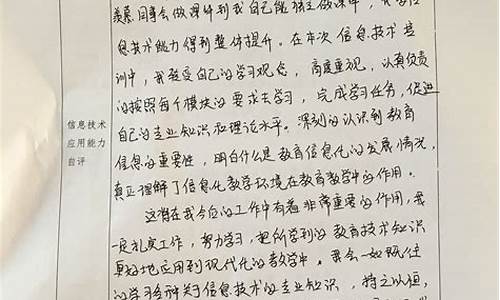 羡慕同事会做课件到我自己能独立做课件，
息技术能力得到整体提升。在本次信息技术培
训中，我转变自己的学习观念，高度重视，认真负责
的按照每个模块的要求去学习，完成学习任务，促进
自己的专业知识和理论水平。深刻的认识到教育
信息的重要性，明白什么是教育信息化的发展情况，
真正理解了信息化教学环境在教育教学中的作用。
这将在我今后的工作中有着非常重要的作用，我
一定扎实工作，努力学习，把所学到的教育技术知识
更好地应用到现代化的教学中。我会一如既往
的学习各种关于信息技术的专业知识，持之以恒，
信息技术
应用能力
自评